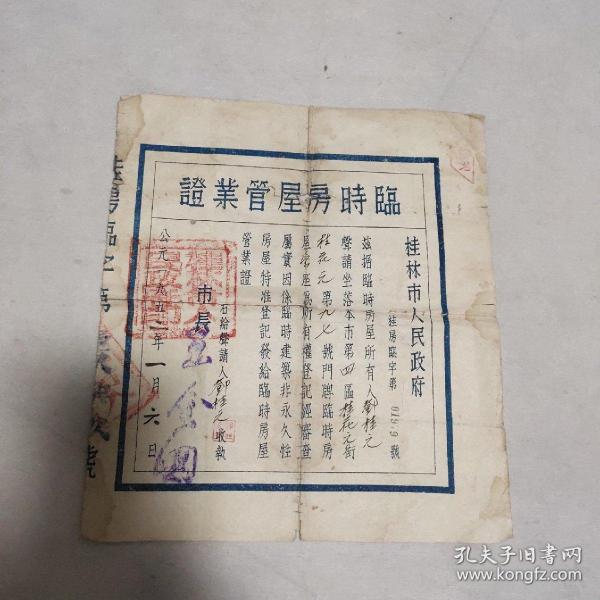 臨時房屋管業證
桂林市人民政府
桂房臨字第0159號
茲据臨時房屋所有人鄧桂元
聲請坐落本市第四區桂花元街
桂花元第九七號門牌臨時房
屋座爲所有權登記經審查
屬實因係臨時建築非永久性
房屋特准登記發給臨時房屋
管業證
右給聲請人鄧桂元收執
市長
公元一九五二年一月六日
孔夫子旧书网
www.kongfz.com